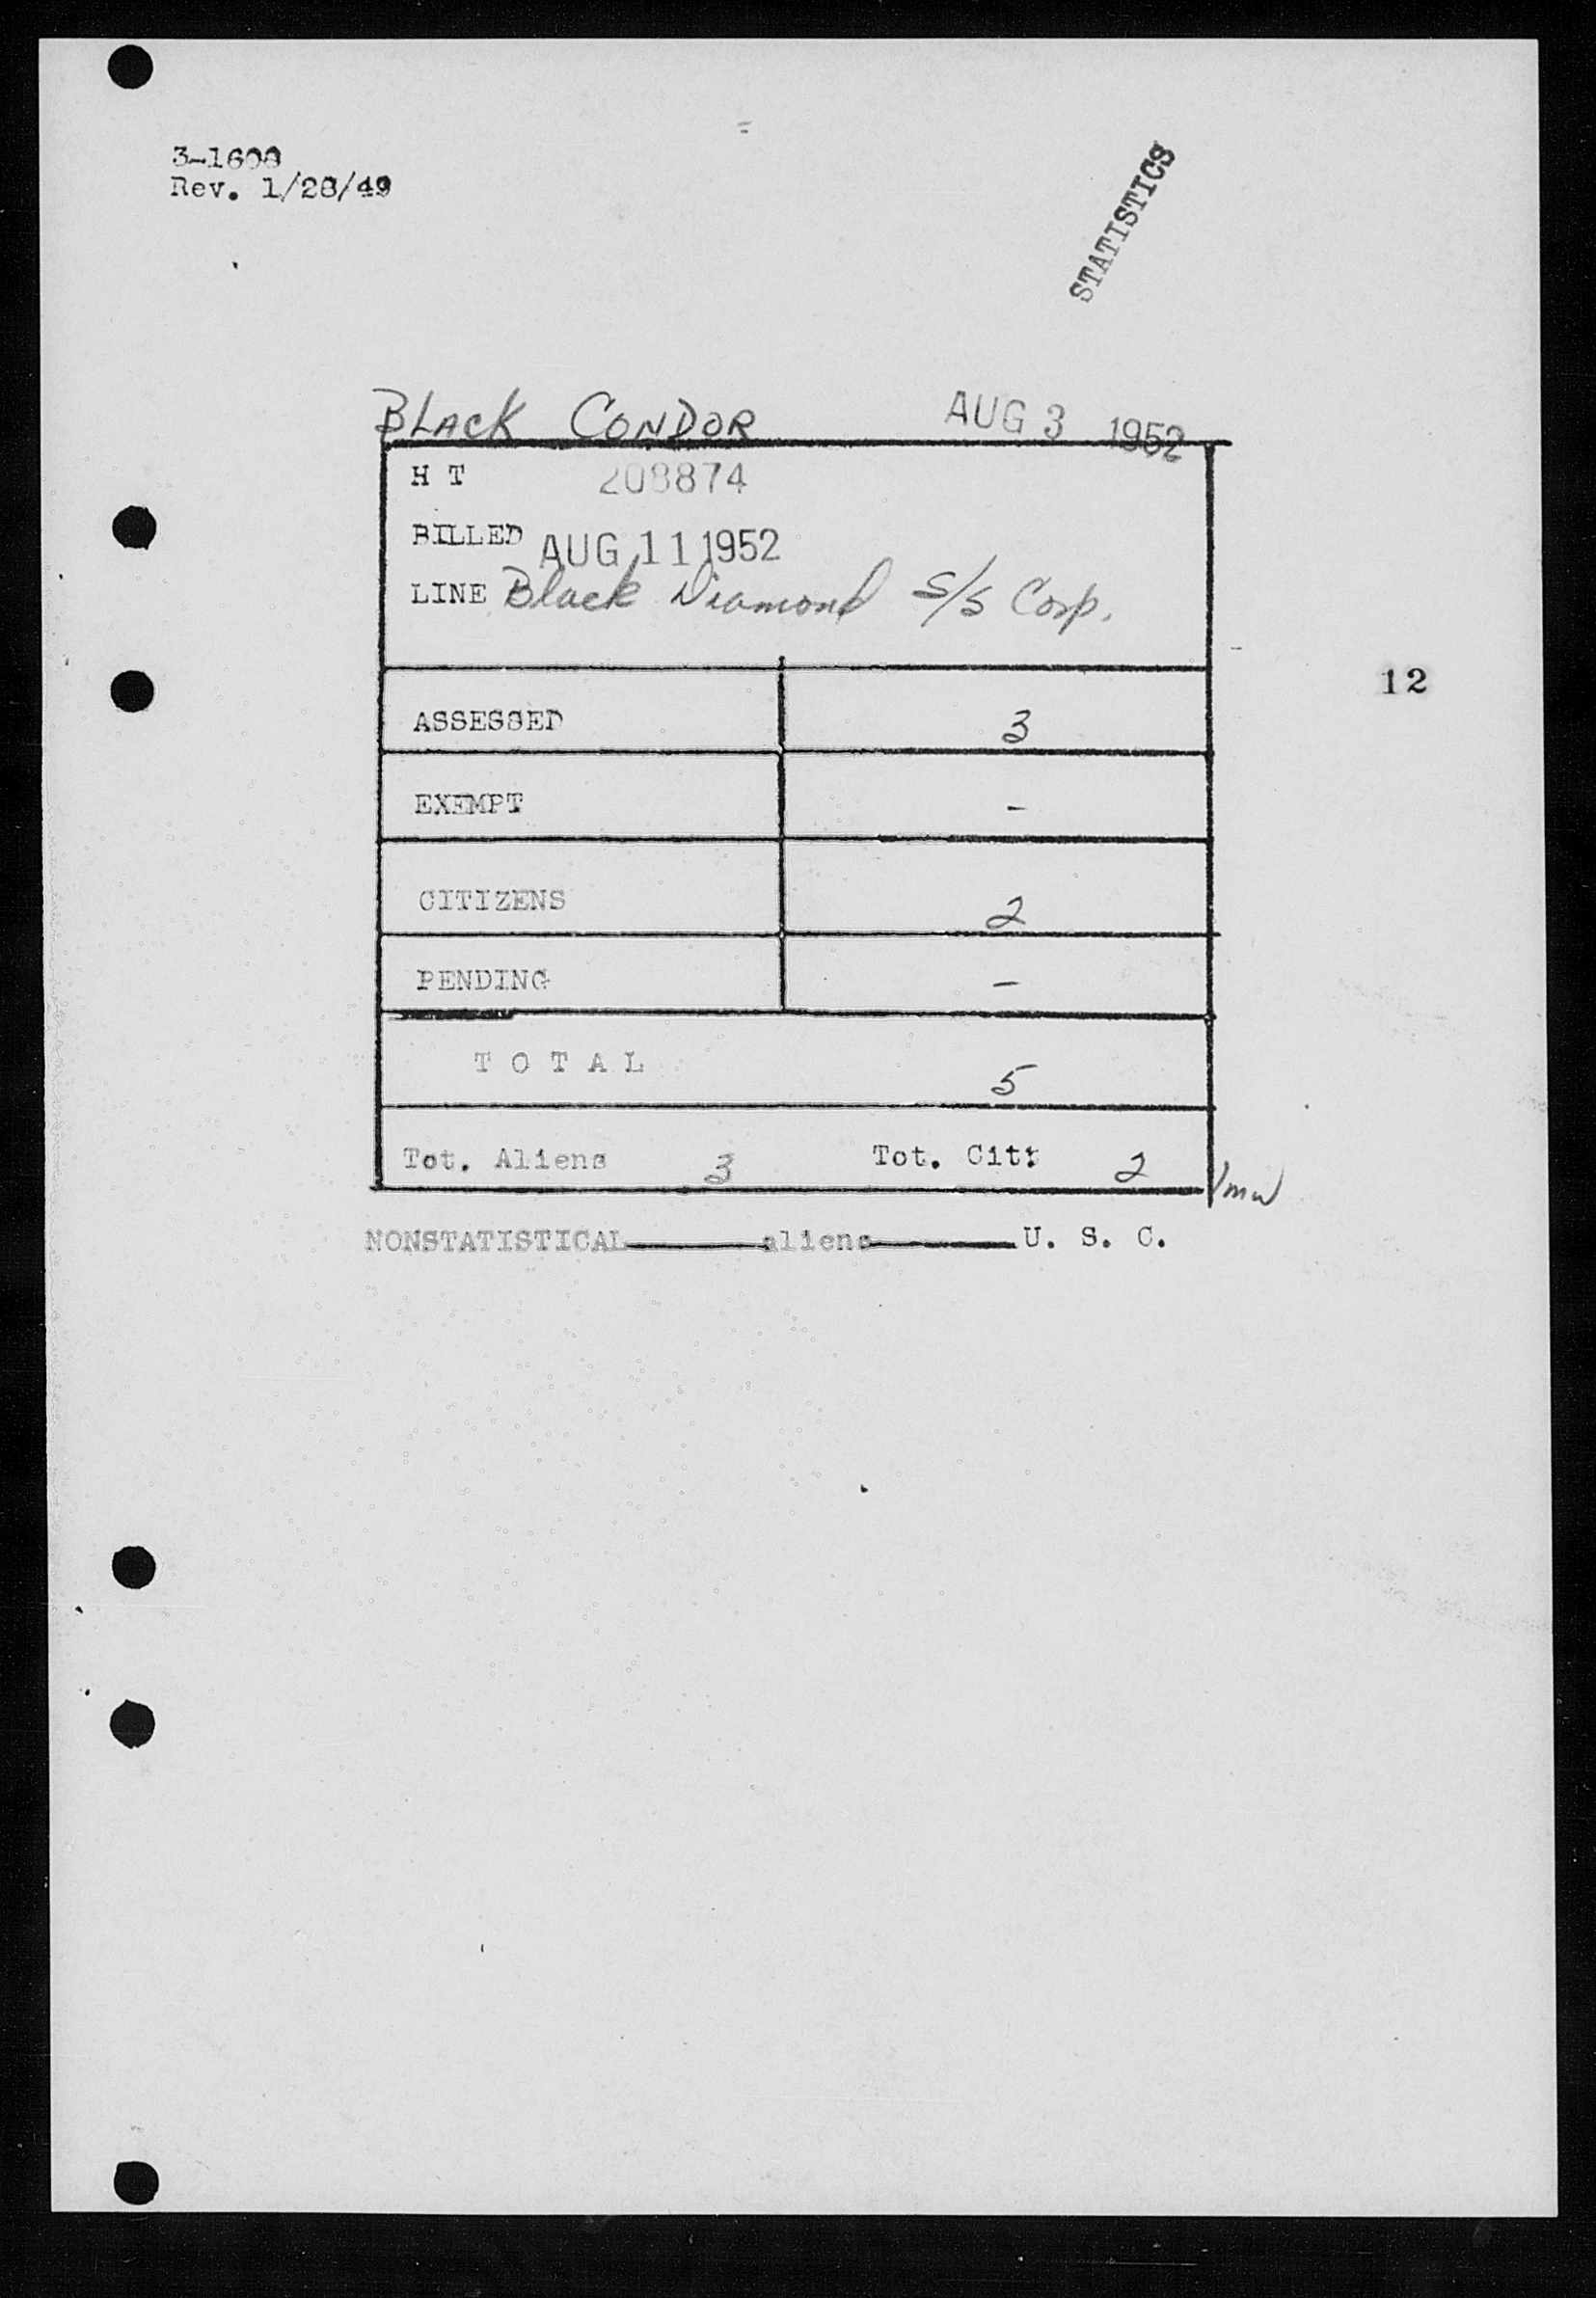 3-1608
Rev. 1/28/49
STATISTICS
BLACK CONDOR AUG 3 1952
H T 208874
BILLED AUG 11 1952
LINE Black Diamond S/S Corp.
12
ASSESSED 3
EXEMPT -
CITIZENS 2
PENDING -
T O T A L 5
Tot. Aliens 3 Tot. Citz 2
NONSTATISTICAL aliens U. S. C.